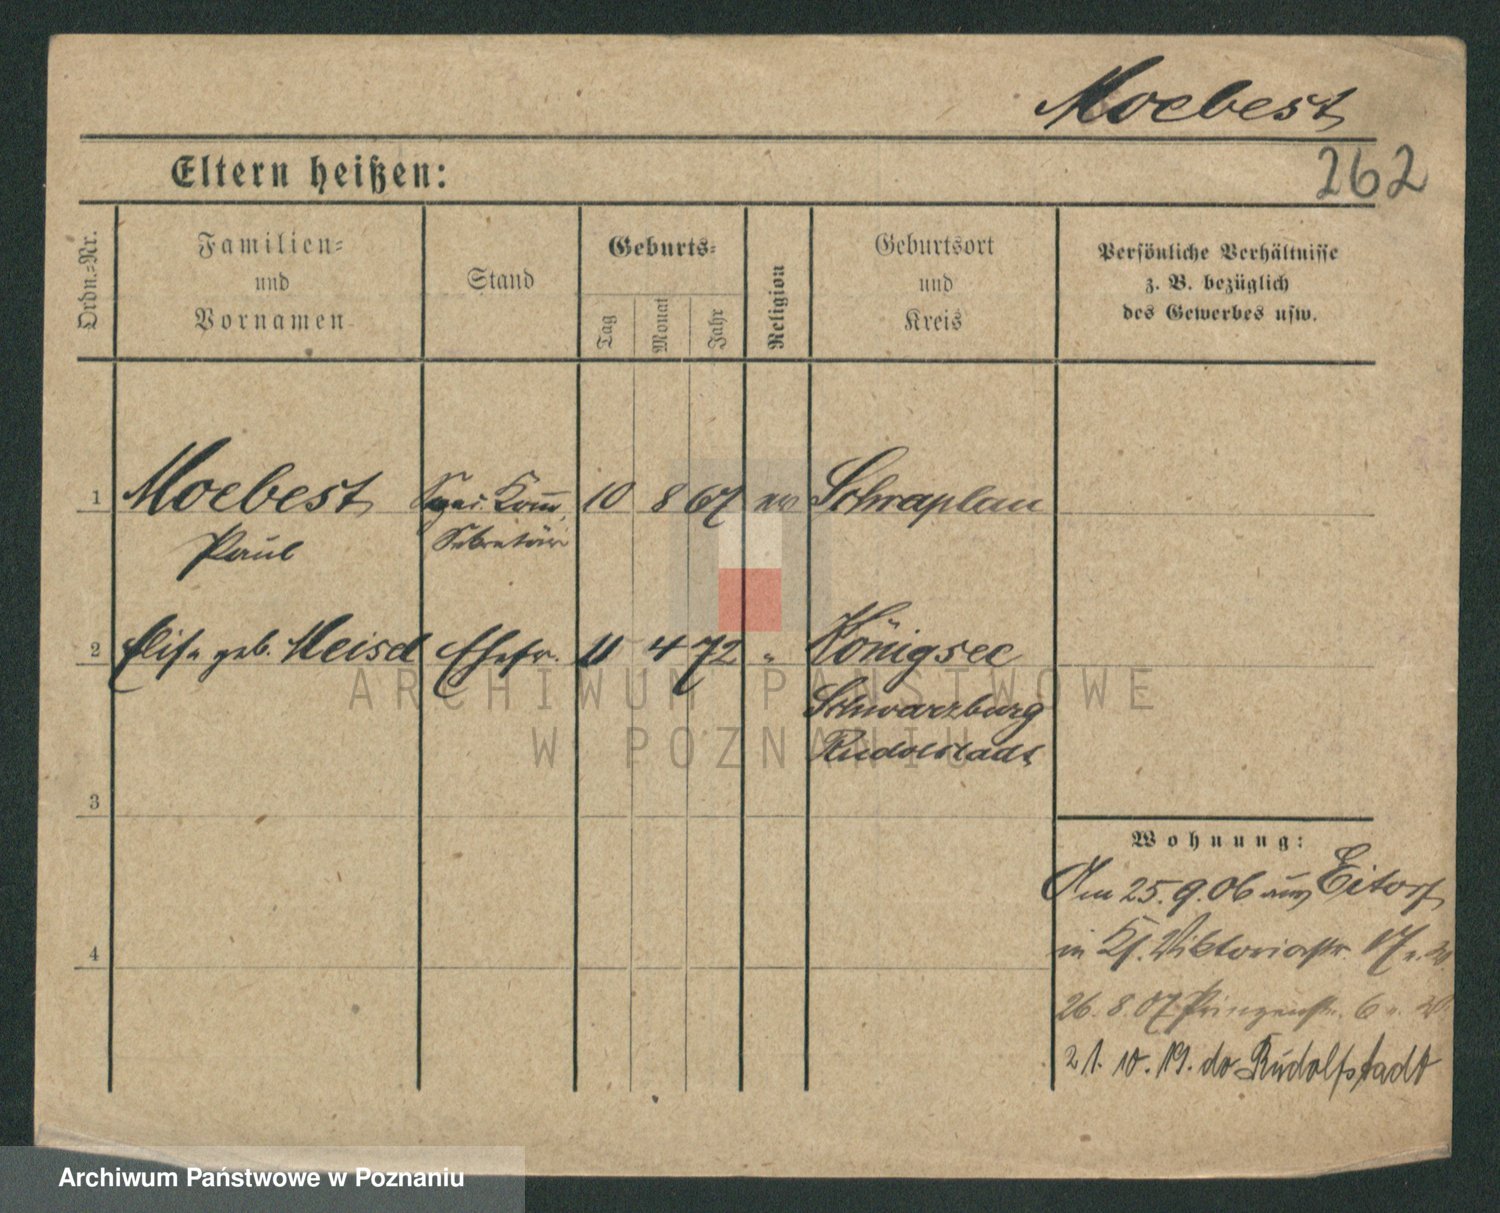 Moebest
262
Eltern heißen:
Ordn.=Nr.
Familien=
und
Vornamen
Stand
Geburts=
Tag
Monat
Jahr
Religion
Geburtsort
und
Kreis
Persönliche Verhältnisse
z. B. bezüglich
des Gewerbes usw.
1 Moebest Komm. 10 8 67 ev Schraplau
Paul Sekretär
2 Elise geb. Meisel Ehefr. 11 4 72 " Königsee
Schwarzburg
Rudolstadt
3
4
Wohnung:
Am 25.9.06 aus Eitorf
in Viktoriastr. 17
26.8.07 Prinzenstr. 6
21.10.19. do Rudolstadt
ARCHIWUM PAŃSTWOWE
W POZNANIU
Archiwum Państwowe w Poznaniu